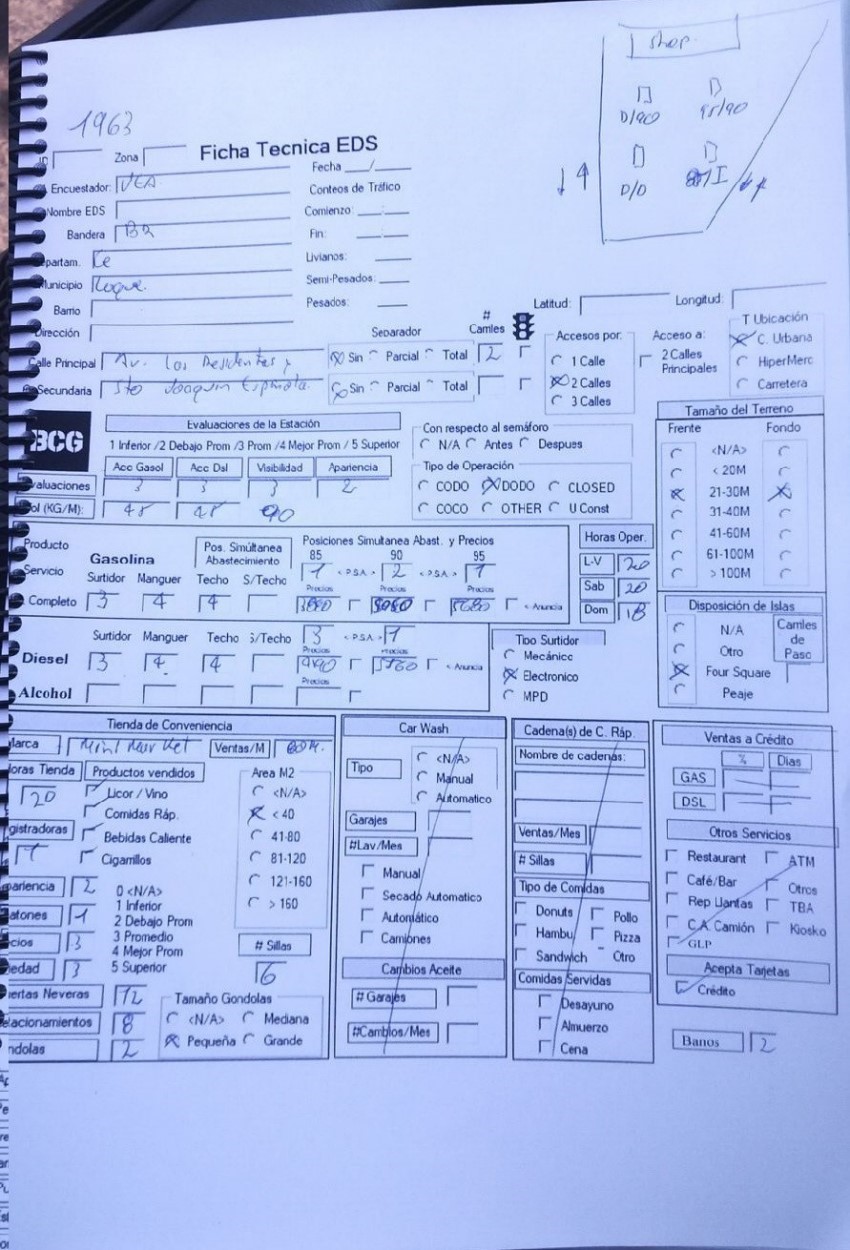 shop
D/90
95/90
D/D
1963
ID
Zona
Ficha Tecnica EDS
Encuestador: VEA
Fecha __/__
Nombre EDS
Conteos de Tráfico
Bandera BR
Comienzo: __:__
Fin: __:__
epartam. Ce
Livianos: __
Municipio Luque.
Semi-Pesados: __
Barrio
Pesados: __
Dirección
Latitud:
Longitud:
Separador
# Carriles
Calle Principal Av. Los
Sin Parcial Total 2
Secundaria Sto Joaquin
Sin Parcial Total
Accesos por:
1 Calle
2 Calles
3 Calles
Acceso a:
2 Calles Principales
T Ubicación
C. Urbana
HiperMerc
Carretera
BCG
Evaluaciones de la Estación
1 Inferior /2 Debajo Prom /3 Prom /4 Mejor Prom / 5 Superior
Acc Gasol Acc Dsl Visibilidad Apariencia
valuaciones 3 3 3 2
ol (KG/M): 45 45 90
Con respecto al semáforo
N/A Antes Despues
Tipo de Operación
CODO DODO CLOSED
COCO OTHER U Const
Tamaño del Terreno
Frente Fondo
<N/A>
< 20M
21-30M
31-40M
41-60M
61-100M
> 100M
Producto
Servicio
Completo
Gasolina
Pos. Simúltanea Abastecimiento
Posiciones Simultanea Abast. y Precios
85 90 95
1 < P.S.A > 2 < P.S.A > 1
Surtidor Manguer Techo S/Techo
Precios Precios Precios
3 4 4
< Anuncia
Horas Oper.
L-V 20
Sab 20
Dom 18
Surtidor Manguer Techo S/Techo 3 < P.S.A > 1
Precios Precios
Diesel 3 4 4
< Anuncia
Precios
Alcohol
Tipo Surtidor
Mecánico
Electronico
MPD
Disposición de Islas
N/A
Otro
Four Square
Peaje
Carriles de Paso
Tienda de Conveniencia
arca Mini Market Ventas/M
oras Tienda 20
Productos vendidos
Licor / Vino
Comidas Ráp.
Bebidas Caliente
Cigarrillos
gistradoras 1
Area M2
<N/A>
< 40
41-80
81-120
121-160
> 160
pariencia 2
1
cios 3
edad 3
0 <N/A>
1 Inferior
2 Debajo Prom
3 Promedio
4 Mejor Prom
5 Superior
# Sillas
6
ertas Neveras 12
elacionamientos 8
ndolas 2
Tamaño Gondolas
<N/A> Mediana
Pequeña Grande
Car Wash
Tipo
<N/A>
Manual
Automatico
Garajes
#Lav/Mes
Manual
Secado Automatico
Automático
Camiones
Cambios Aceite
# Garajes
#Cambios/Mes
Cadena(s) de C. Ráp.
Nombre de cadenas:
Ventas/Mes
# Sillas
Tipo de Comidas
Donuts Pollo
Hambu Pizza
Sandwich Otro
Comidas Servidas
Desayuno
Almuerzo
Cena
Ventas a Crédito
% Dias
GAS
DSL
Otros Servicios
Restaurant ATM
Café/Bar Otros
Rep Llantas TBA
C.A. Camión Kiosko
GLP
Acepta Tarjetas
Crédito
Banos 2